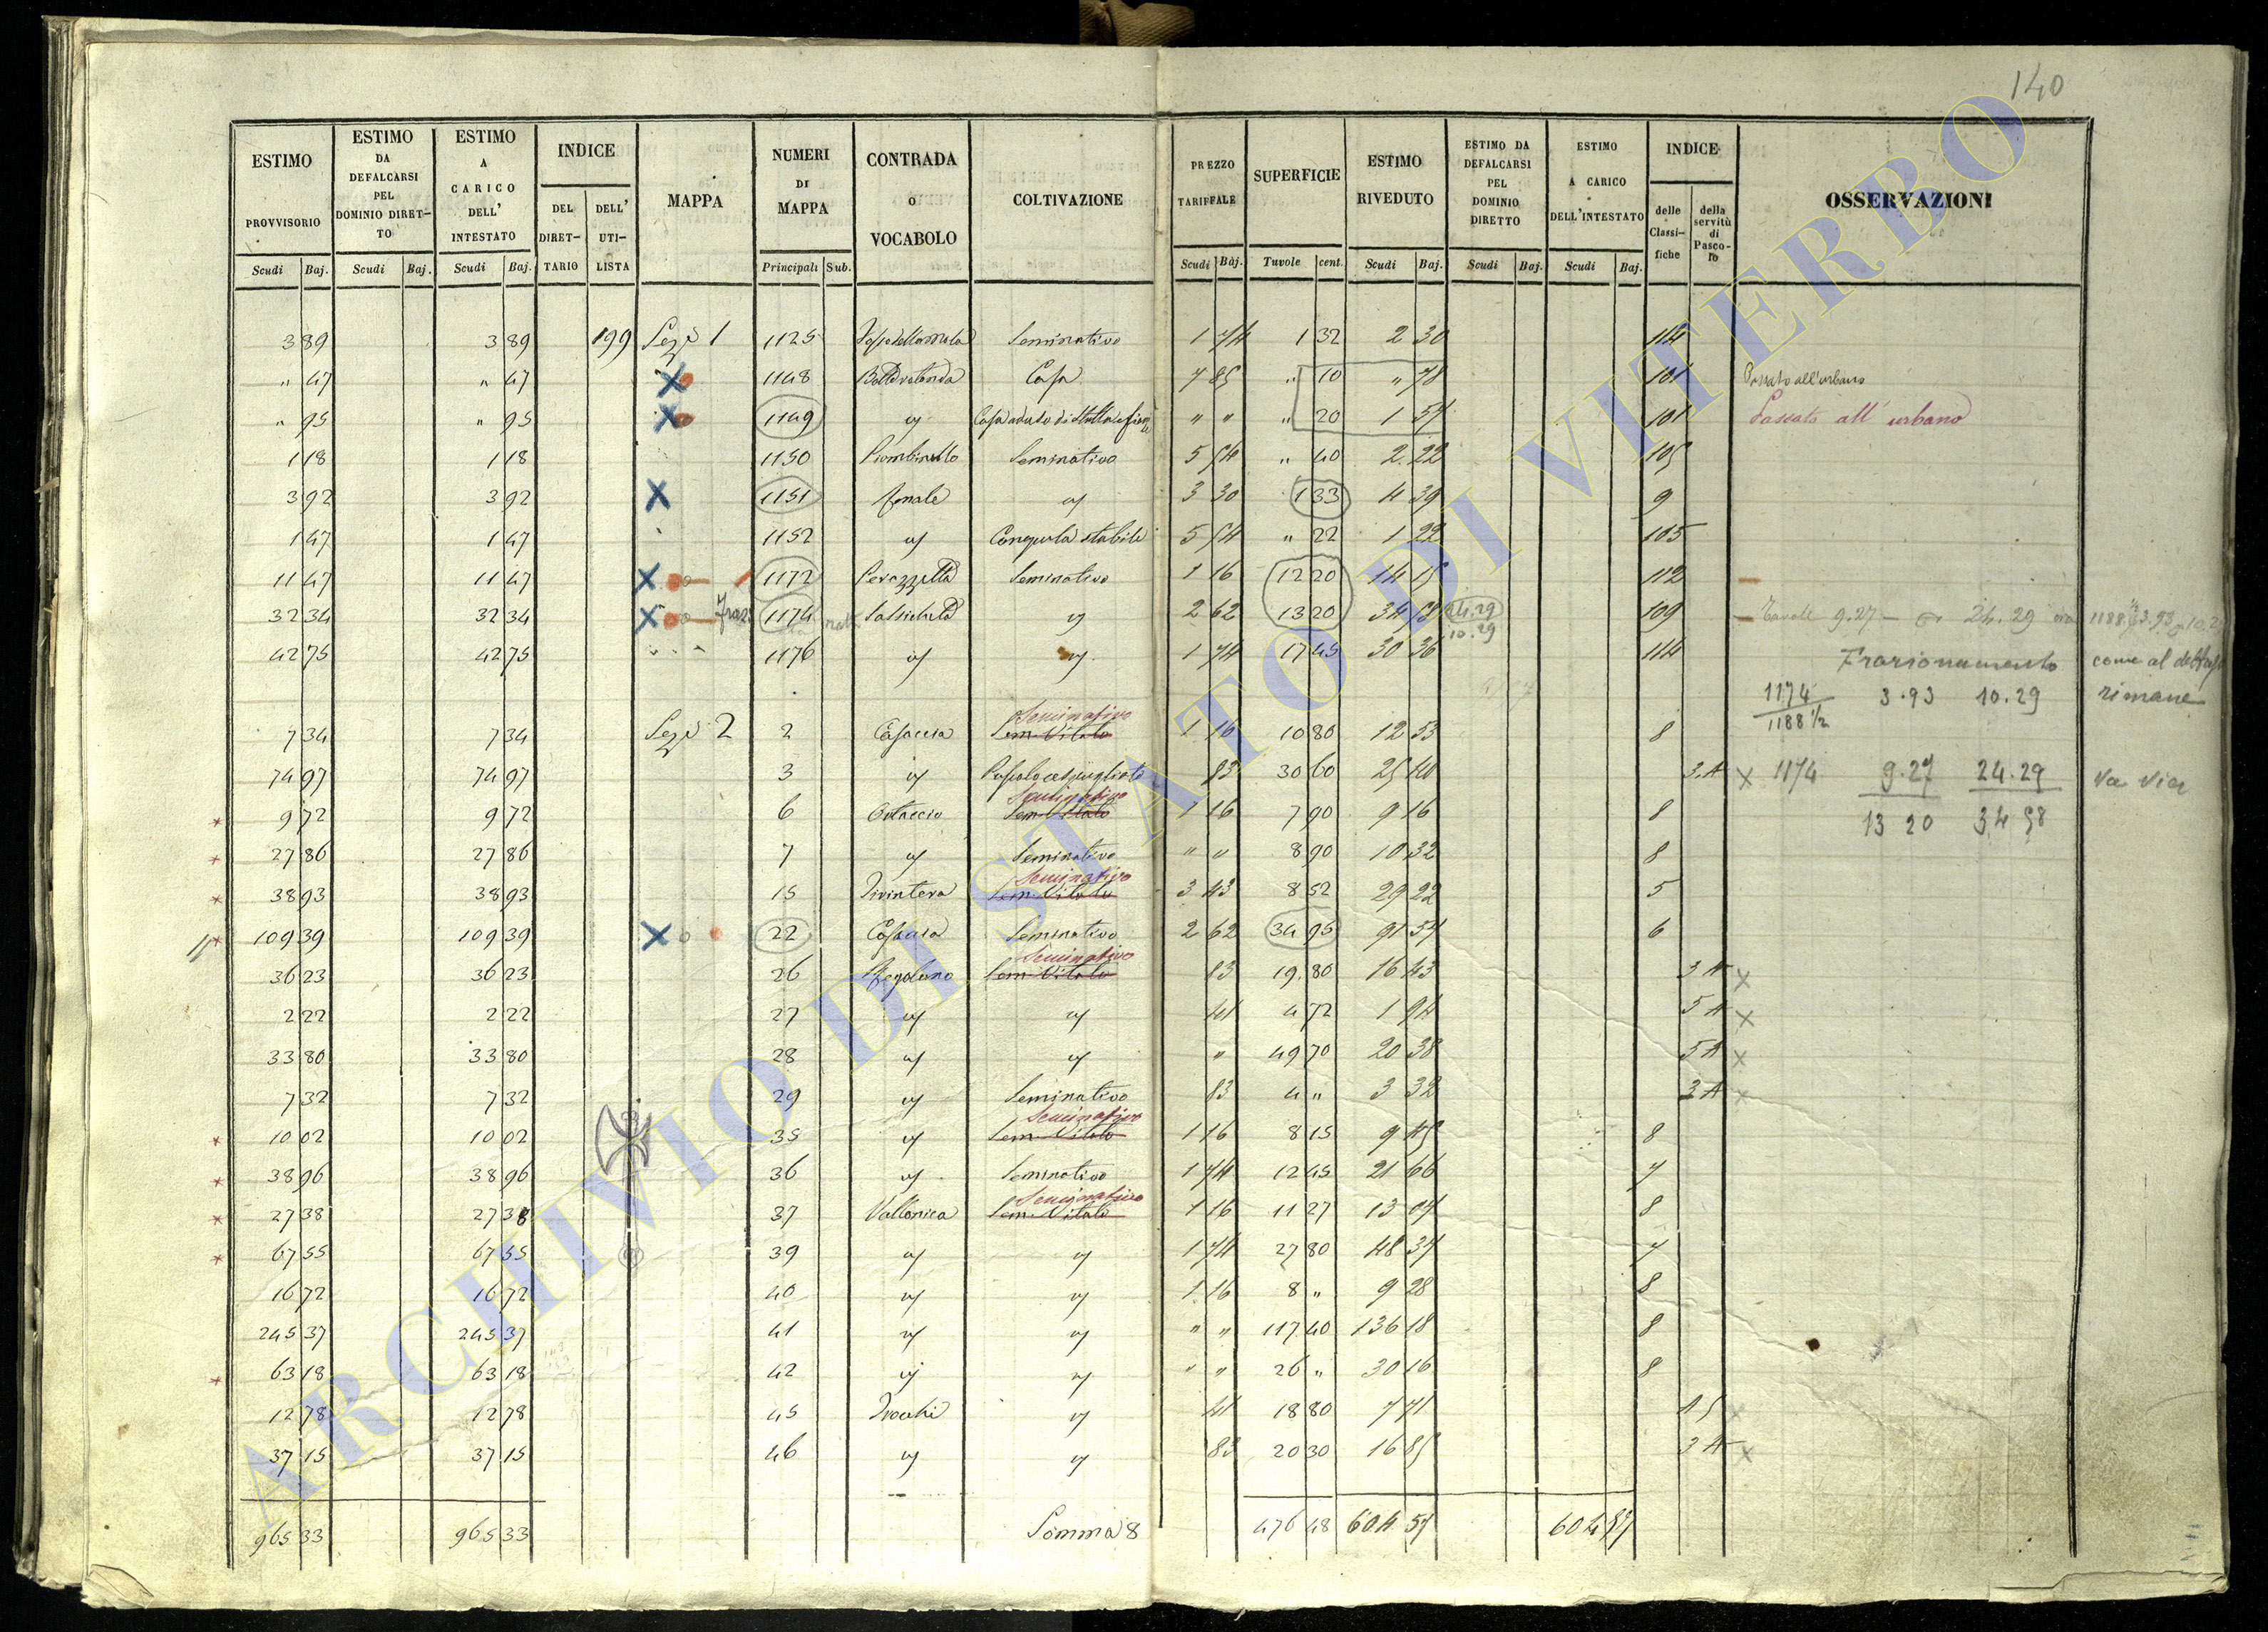 140
ESTIMO PROVVISORIO Scudi Baj.
ESTIMO DA DEFALCARSI PEL DOMINIO DIRET-TO Scudi Baj.
ESTIMO A CARICO DELL' INTESTATO Scudi Baj.
INDICE DEL DIRET-TARIO DELL' UTI-LISTA
MAPPA
NUMERI DI MAPPA Principali Sub.
CONTRADA O VOCABOLO
COLTIVAZIONE
PREZZO TARIFFALE Scudi Baj.
SUPERFICIE Tavole cent.
ESTIMO RIVEDUTO Scudi Baj.
ESTIMO DA DEFALCARSI PEL DOMINIO DIRETTO Scudi Baj.
ESTIMO A CARICO DELL'INTESTATO Scudi Baj.
INDICE delle Classi-fiche della servitù di Pasco-lo
OSSERVAZIONI
3 89 3 89 199 Sezе 1 1125 Seminativo 1 74 1 32 2 30 114
" 47 " 47 X 1148 Casa 7 85 " 10 " 78 101 Passato all'urbano
" 95 " 95 X 1149 " " " " 20 1 57 101 Passato all' urbano
1 18 1 18 1150 Piombinello Seminativo 5 54 " 40 2 22 105
3 92 3 92 X 1151 " 3 30 1 33 4 39 9
1 47 1 47 1152 " 5 54 " 22 1 22 105
11 47 11 47 X 1172 Perazzetta Seminativo 1 16 12 20 14 15 112
32 34 32 34 X Fraz. 1174 " 2 62 13 20 34 58 24.29 109 Tavole 9.27 24.29
10.29
42 75 42 75 1176 " " 1 74 17 45 30 36 114 Frazionamento come al
1174 3.93 10.29 rimane
1188 1/2
7 34 7 34 Sezе 2 2 Casaccia Sem. Vitato Seminativo 1 16 10 80 12 53 8
74 97 74 97 3 " Pascolo cespugliato 83 30 60 25 40 3.A X 1174 9.27 24.29
* 9 72 9 72 6 Ortaccio Sem. Vitato Seminativo 1 16 7 90 9 16 8 13 20 34 58
* 27 86 27 86 7 " Seminativo " " 8 90 10 32 8
* 38 93 38 93 15 Sem. Vitato Seminativo 3 43 8 52 29 22 5
* 109 39 109 39 X 22 Casaccia Seminativo 2 62 34 95 91 57 6
36 23 36 23 26 Sem. Vitato Seminativo 83 19 80 16 43 3 A X
2 22 2 22 27 " " 41 4 72 1 94 5 A X
33 80 33 80 28 " " " 49 70 20 38 5 A X
7 32 7 32 29 " Seminativo 83 4 " 3 32 3 A X
* 10 02 10 02 35 " Sem. Vitato Seminativo 1 16 8 15 9 45 8
* 38 96 38 96 36 " Seminativo 1 74 12 45 21 66 7
* 27 38 27 38 37 Sem. Vitato Seminativo 1 16 11 27 13 07 8
* 67 55 67 55 39 " " 1 74 27 80 48 37 7
16 72 16 72 40 " " 1 16 8 " 9 28 8
245 37 245 37 41 " " " " 117 40 136 18 8
* 63 18 63 18 42 " " " " 26 " 30 16 8
12 78 12 78 45 " 41 18 80 7 71 X
37 15 37 15 46 " " 83 20 30 16 85 3 A X
965 33 965 33 Somma 8 476 48 604 57 604 57
ARCHIVIO DI STATO DI VITERBO